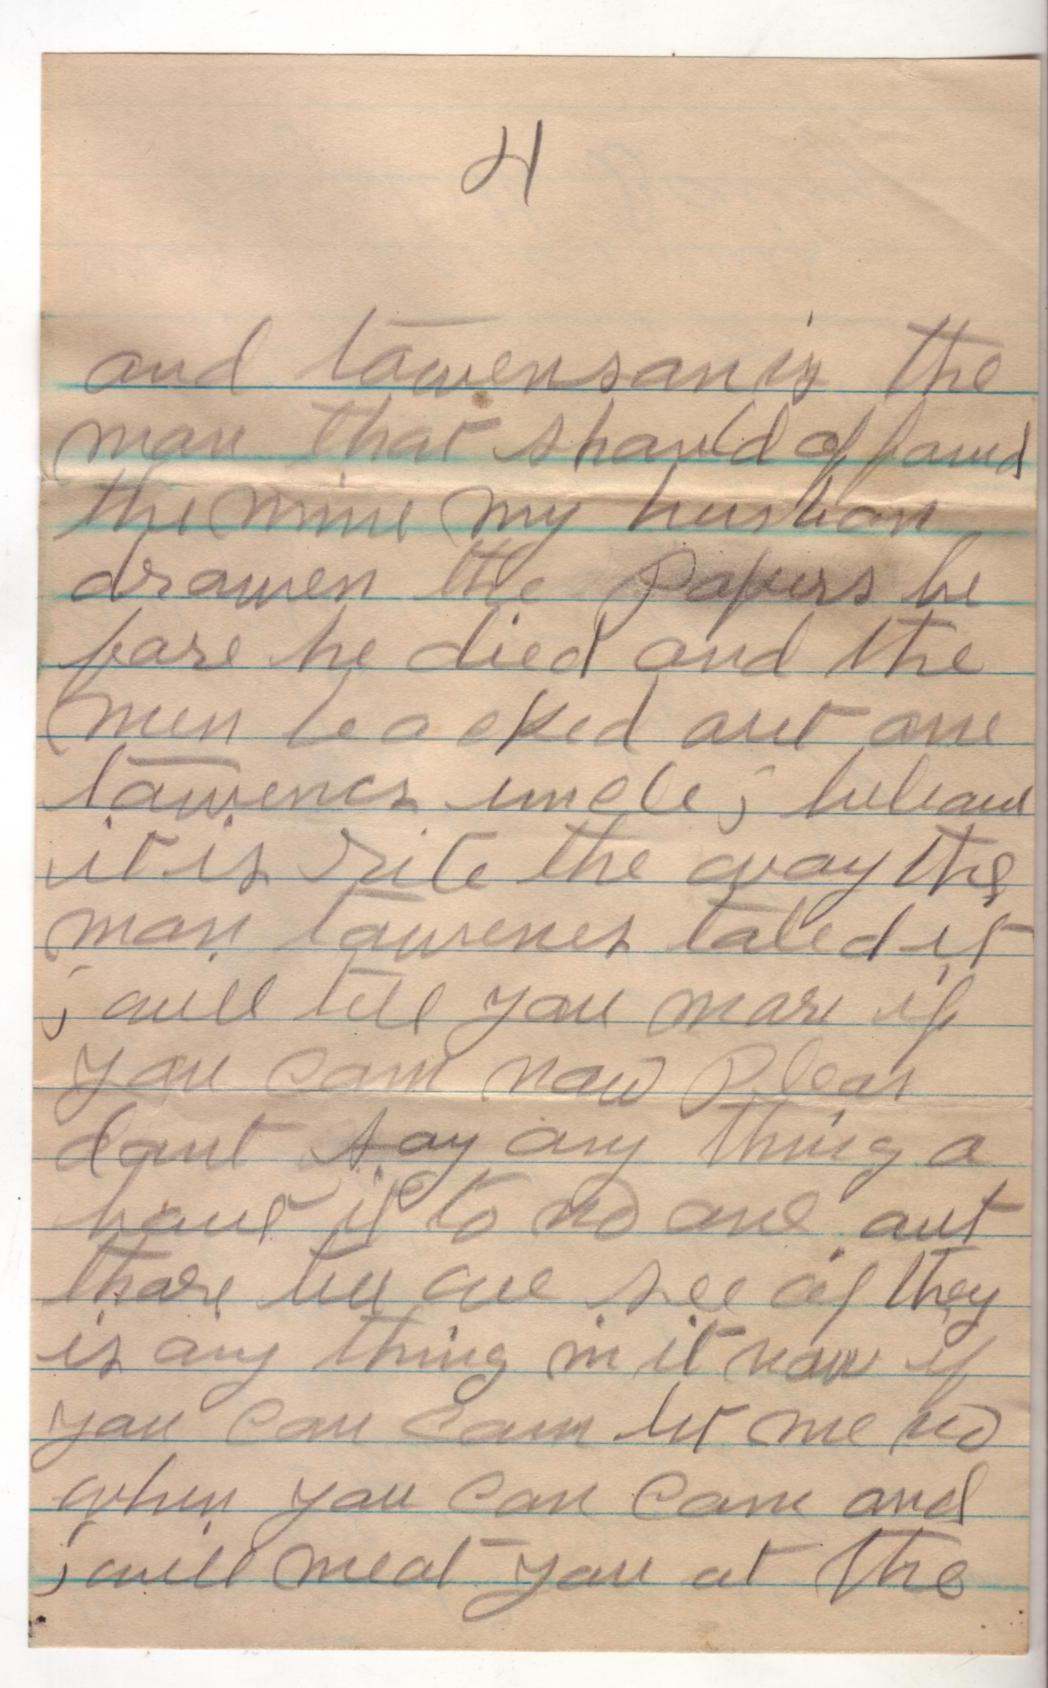 4
and tawensan is the
man that should of found
the mine my husban
drawen the papers be
fore he died and the
men backed out one
tawencs uncle i beleave
it is rite the way the
man tawences toled it
i will tell you more if
you com now pleas
dont say any thing a
bout it to no one out
thare tell we see if they
is any thing in it now if
you can com let me no
when you can come and
i will meat you at the